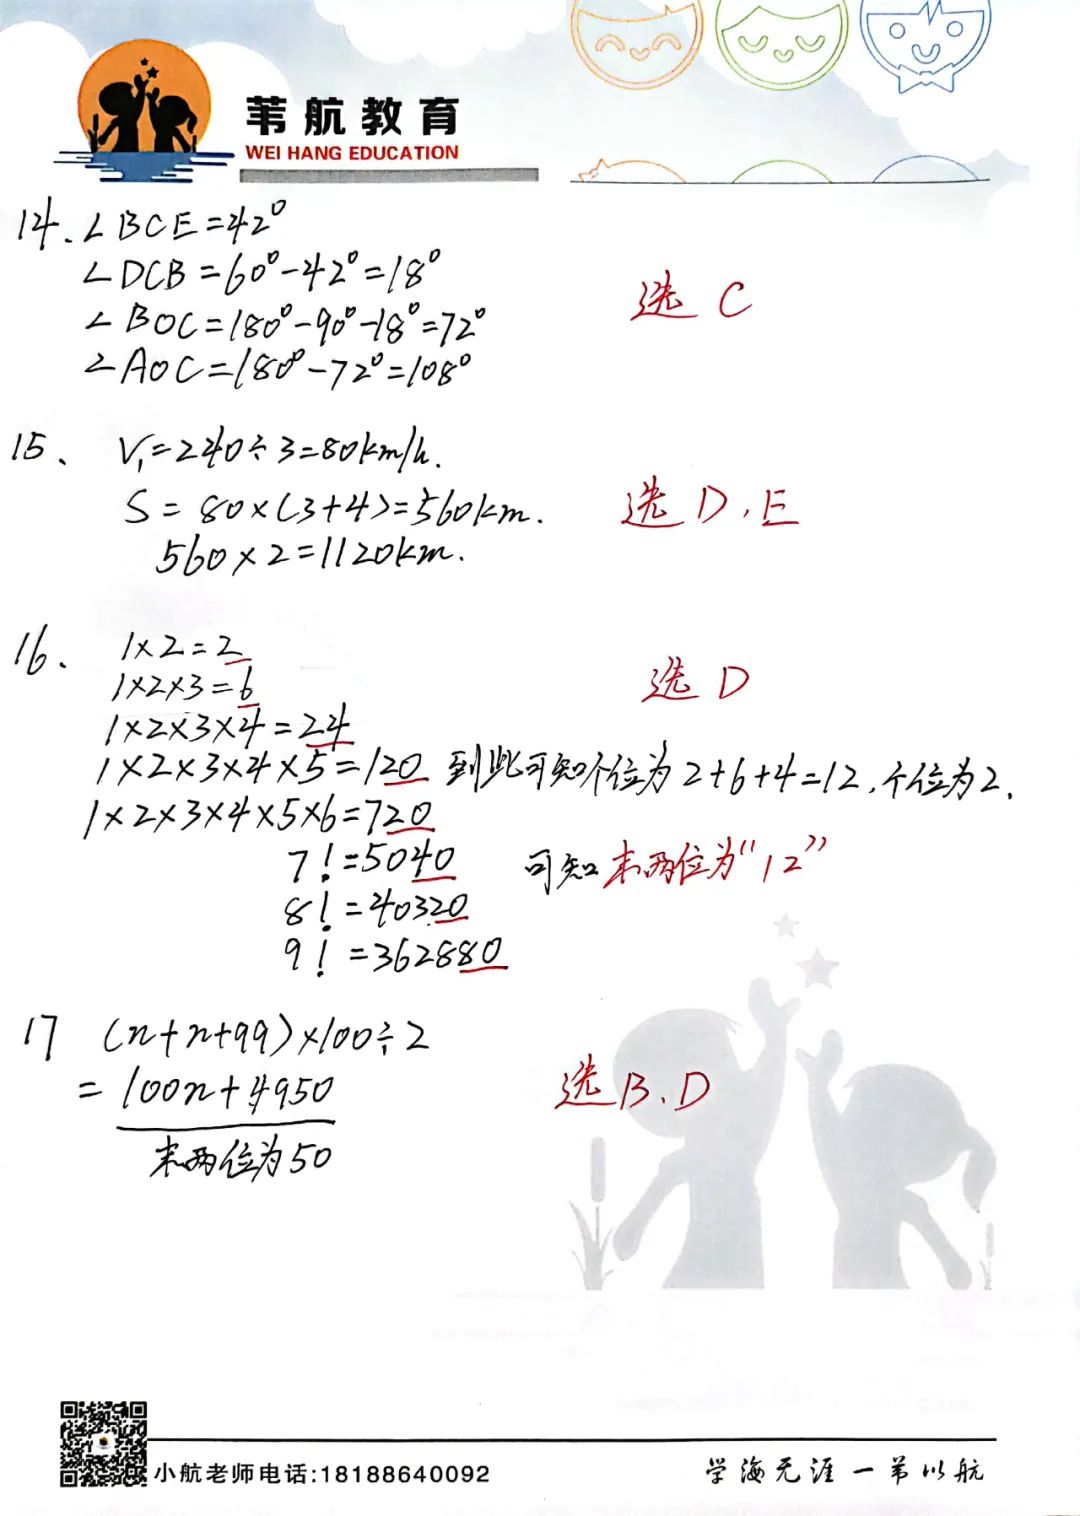 苇航教育
WEI HANG EDUCATION
14. ∠BCE=42°
∠DCB=60°-42°=18°
∠BOC=180°-90°-18°=72°
∠AOC=180°-72°=108°
选 C
15、 V₁=240÷3=80km/h.
S=80×(3+4)=560km.
560×2=1120km.
选 D、E
16、 1×2=2
1×2×3=6
1×2×3×4=24
1×2×3×4×5=120 到此可知个位为2+6+4=12,个位为2.
1×2×3×4×5×6=720
7!=5040 可知末两位为“12”
8!=40320
9!=362880
选 D
17 (n+n+99)×100÷2
=100n+4950
末两位为50
选B、D
小航老师电话:18188640092
学海无涯一苇以航